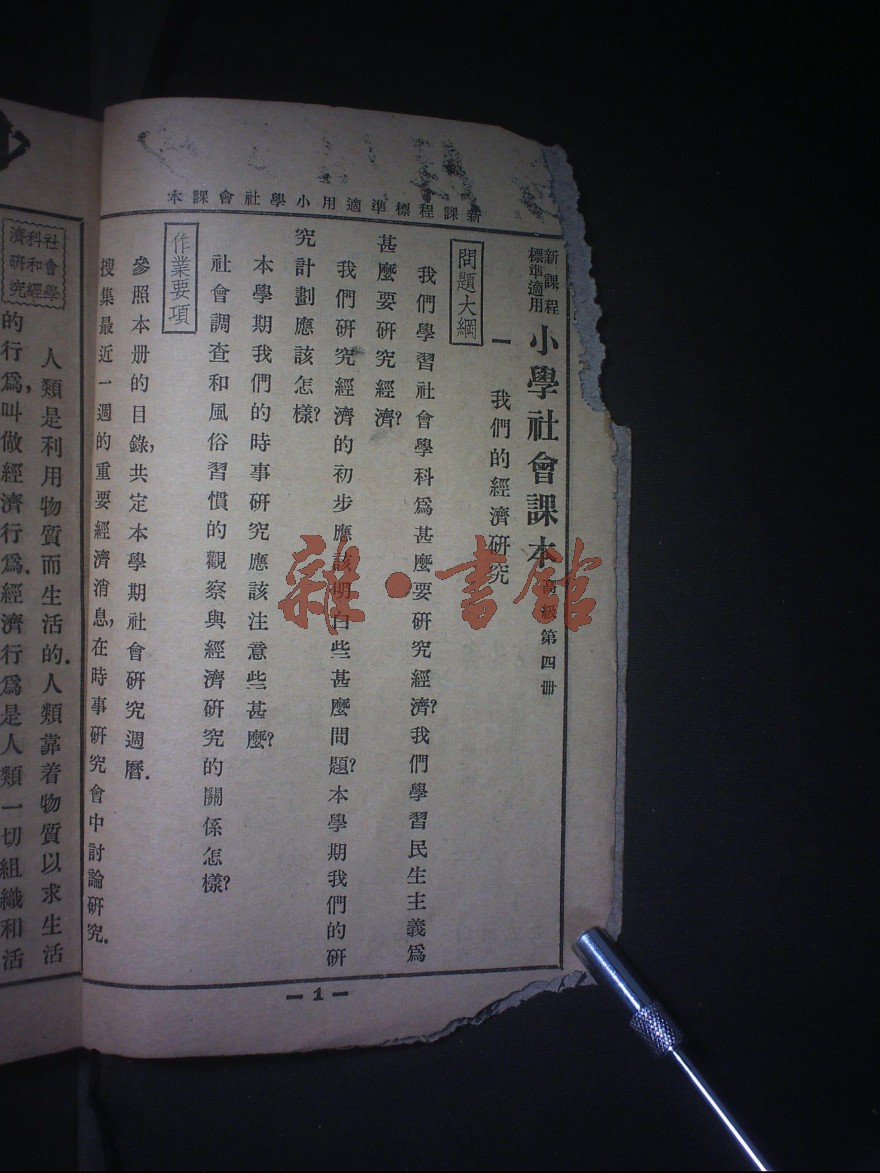 新課程標準適用小學社會課本
新課程
標準適用
小學社會課本 高級第四冊
一 我們的經濟研究
問題大綱
我們學習社會學科爲甚麼要研究經濟?我們學習民生主義爲
甚麼要研究經濟?
我們研究經濟的初步應該明白些甚麼問題?本學期我們的研
究計劃應該怎樣?
本學期我們的時事研究應該注意些甚麼?
社會調查和風俗習慣的觀察與經濟研究的關係怎樣?
作業要項
參照本册的目錄,共定本學期社會研究週曆.
搜集最近一週的重要經濟消息,在時事研究會中討論研究.
— 1 —
社會學
科和經
濟研究
人類是利用物質而生活的.人類靠着物質以求生活
的行爲,叫做經濟行爲.經濟行爲是人類一切組織和活
雜·書館